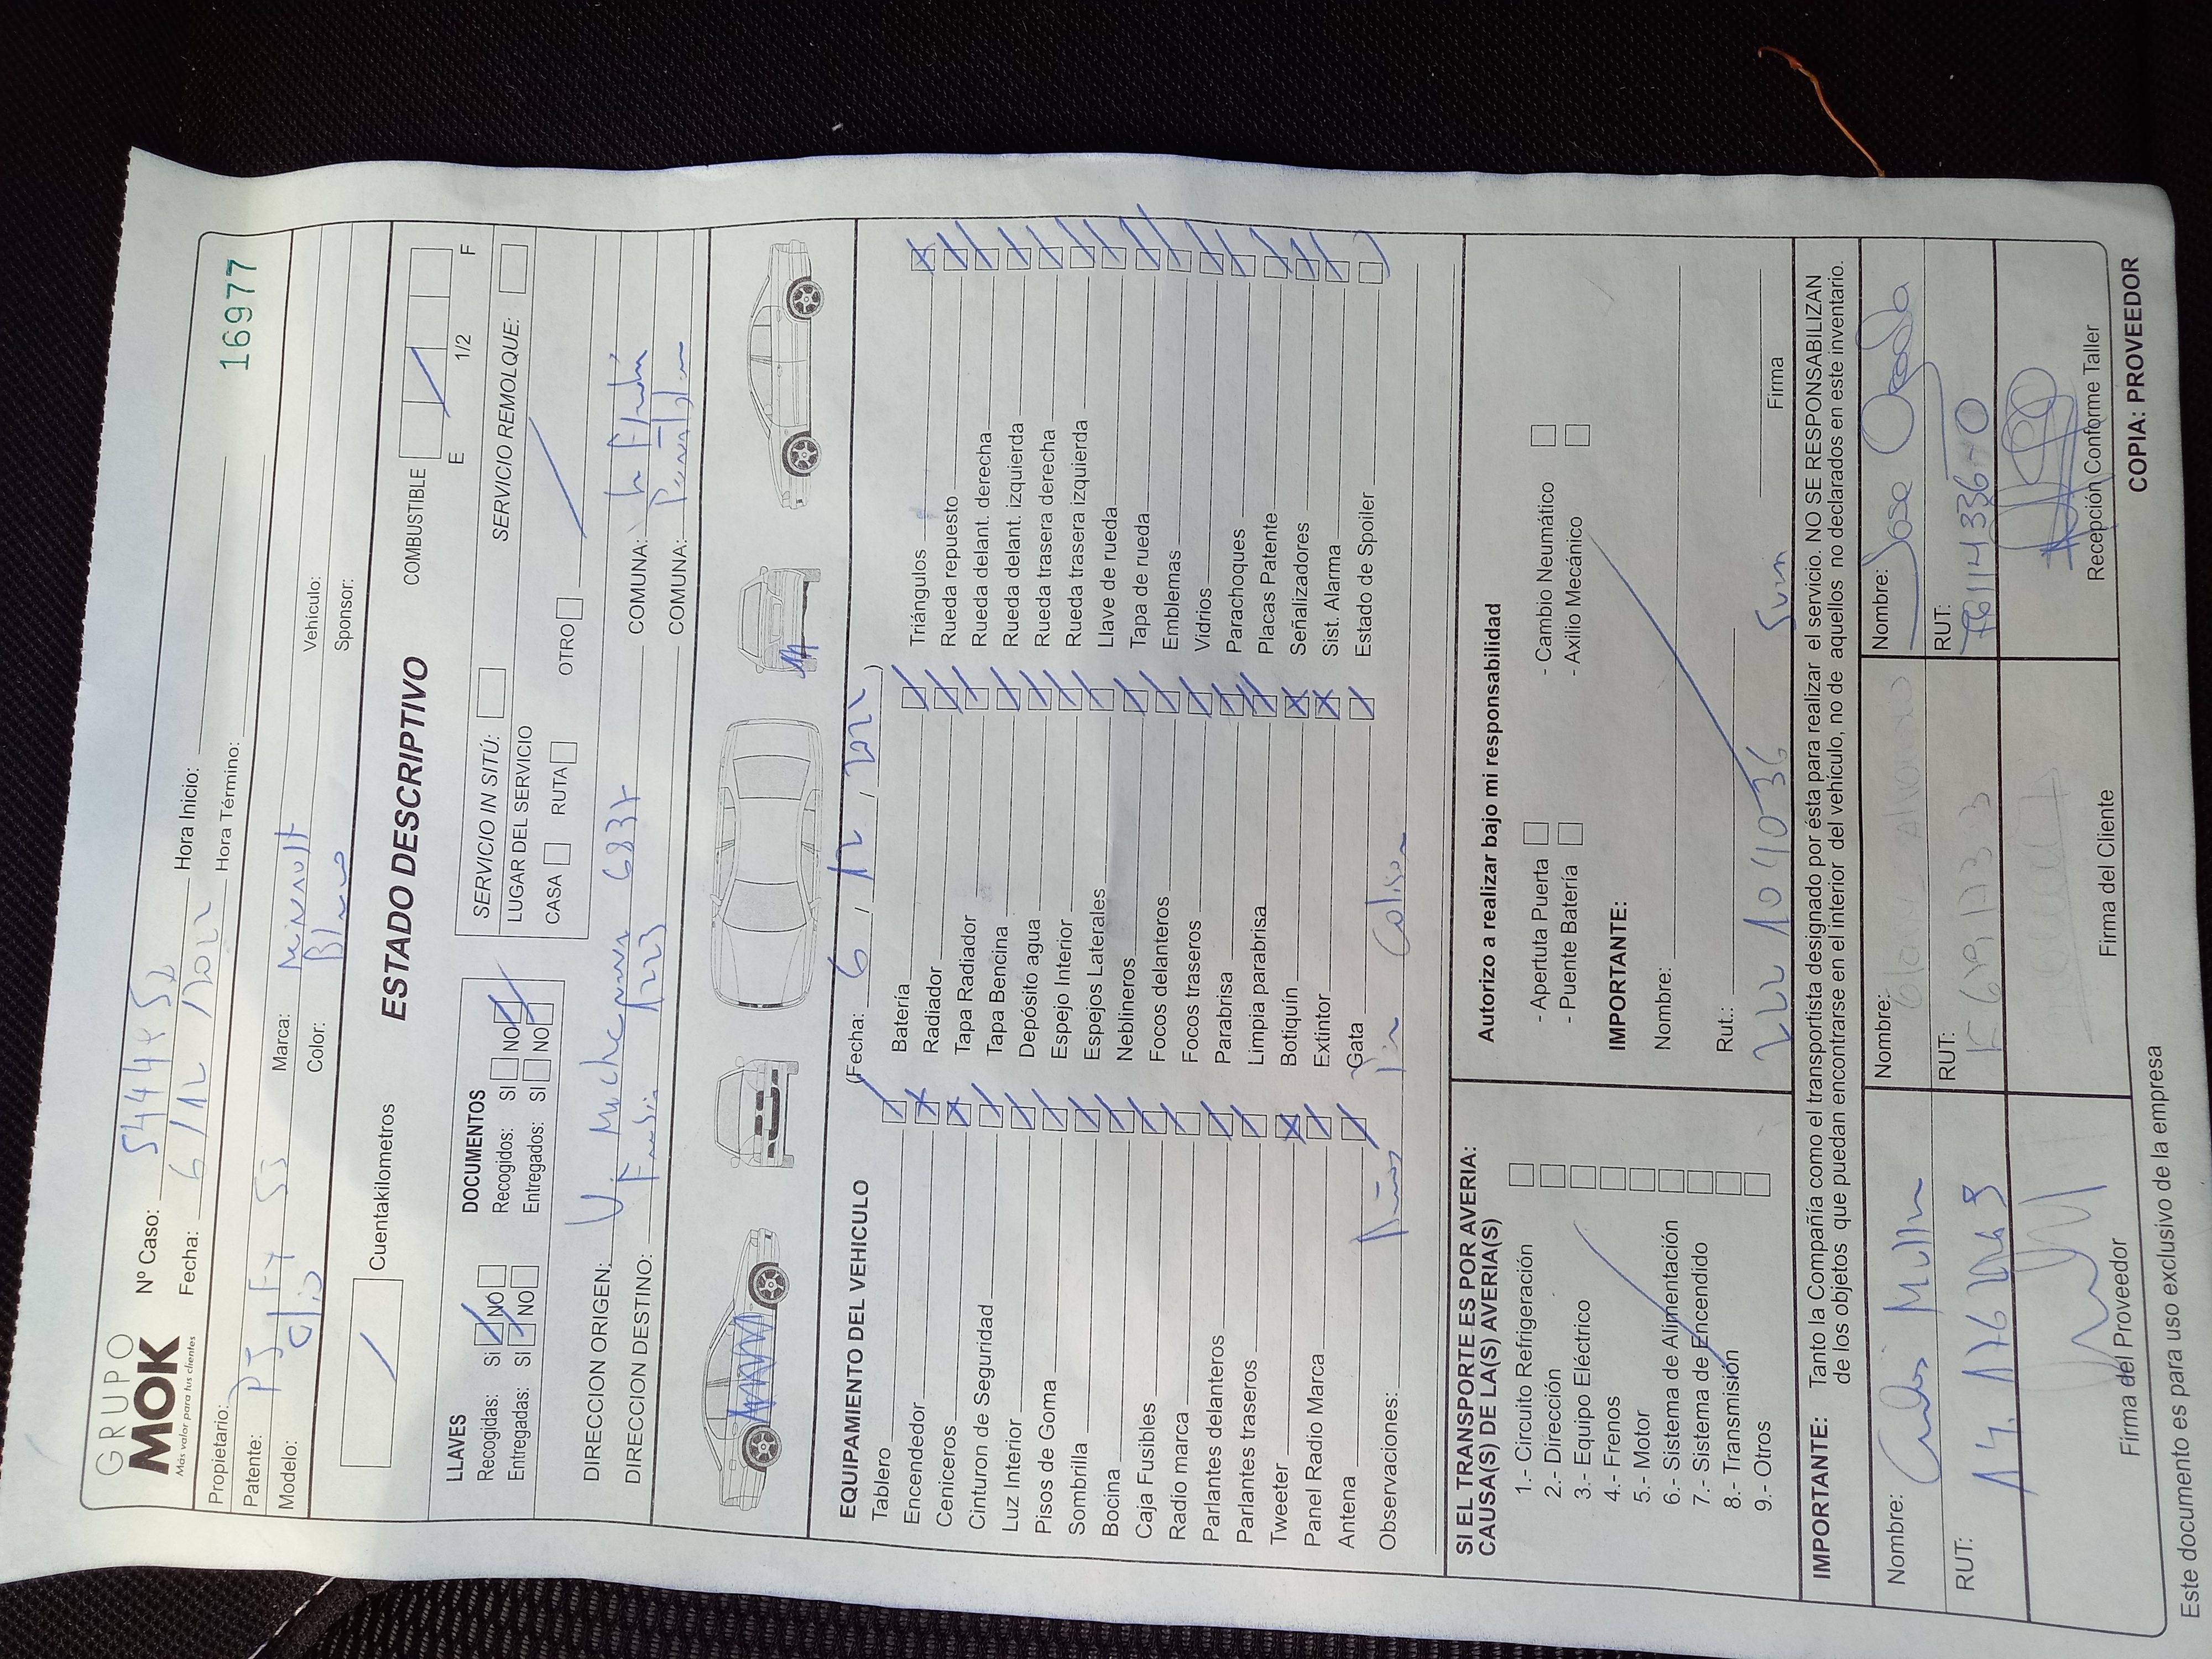 GRUPO
MOK
Más valor para tus clientes
Nº Caso:
Fecha: 6 / 12 / 2022
Hora Inicio:
Hora Término:
16977
Propietario:
Patente:
Marca:
Vehículo:
Modelo: Clio
Color: Blanco
Sponsor:
Cuentakilometros
ESTADO DESCRIPTIVO
COMBUSTIBLE
E 1/2 F
LLAVES
Recogidas: Si NO
Entregadas: SI NO
DOCUMENTOS
Recogidos: SI NO
Entregados: SI NO
SERVICIO IN SITÚ:
SERVICIO REMOLQUE:
LUGAR DEL SERVICIO
CASA RUTA OTRO
DIRECCION ORIGEN: 6837
COMUNA: La Florida
DIRECCION DESTINO: 1223
COMUNA:
EQUIPAMIENTO DEL VEHICULO
(Fecha: 6 / 12 / 2022 )
Tablero
Encendedor
Ceniceros
Cinturon de Seguridad
Luz Interior
Pisos de Goma
Sombrilla
Bocina
Caja Fusibles
Radio marca
Parlantes delanteros
Parlantes traseros
Tweeter
Panel Radio Marca
Antena
Batería
Radiador
Tapa Radiador
Tapa Bencina
Depósito agua
Espejo Interior
Espejos Laterales
Neblineros
Focos delanteros
Focos traseros
Parabrisa
Limpia parabrisa
Botiquín
Extintor
Gata
Triángulos
Rueda repuesto
Rueda delant. derecha
Rueda delant. izquierda
Rueda trasera derecha
Rueda trasera izquierda
Llave de rueda
Tapa de rueda
Emblemas
Vidrios
Parachoques
Placas Patente
Señalizadores
Sist. Alarma
Estado de Spoiler
Observaciones: Daños Por Colision
SI EL TRANSPORTE ES POR AVERIA:
CAUSA(S) DE LA(S) AVERIA(S)
1.- Circuito Refrigeración
2.- Dirección
3.- Equipo Eléctrico
4.- Frenos
5.- Motor
6.- Sistema de Alimentación
7.- Sistema de Encendido
8.- Transmisión
9.- Otros
Autorizo a realizar bajo mi responsabilidad
- Apertuta Puerta
- Puente Batería
- Cambio Neumático
- Axilio Mecánico
IMPORTANTE:
Nombre:
Rut.:
Firma
IMPORTANTE: Tanto la Compañía como el transportista designado por ésta para realizar el servicio. NO SE RESPONSABILIZAN
de los objetos que puedan encontrarse en el interior del vehículo, no de aquellos no declarados en este inventario.
Nombre:
RUT:
Firma del Proveedor
Nombre:
RUT:
Firma del Cliente
Nombre: Jose
RUT:
Recepción Conforme Taller
Este documento es para uso exclusivo de la empresa
COPIA: PROVEEDOR